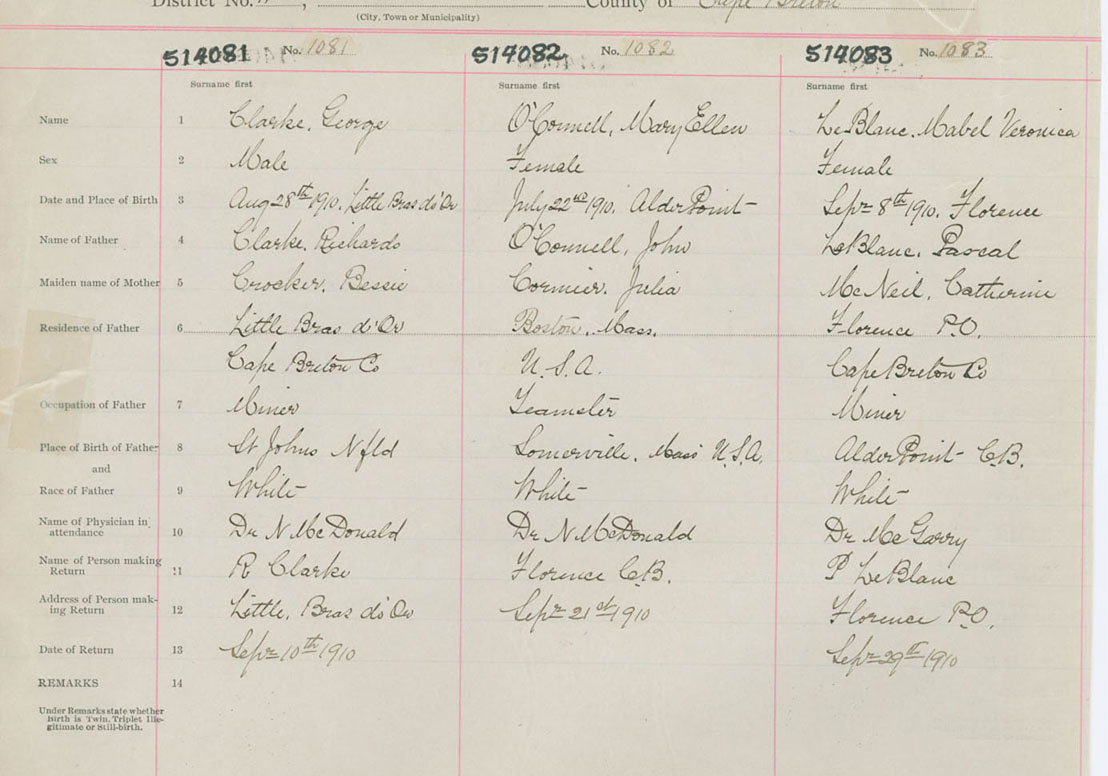 District No. County of Cape Breton
(City, Town or Municipality)
514081 No. 1081 514082 No. 1082 514083 No. 1083
Surname first Surname first Surname first
Name 1 Clarke, George O'Connell, Mary Ellen LeBlanc, Mabel Veronica
Sex 2 Male Female Female
Date and Place of Birth 3 Aug 28th 1910. Little Bras d'Or July 22nd 1910. Alder Point Sepr 8th 1910. Florence
Name of Father 4 Clarke, Richards O'Connell, John LeBlanc, Pascal
Maiden name of Mother 5 Crocker, Bessie Cormier, Julia McNeil, Catherine
Residence of Father 6 Little Bras d'Or Boston, Mass. Florence P.O.
Cape Breton Co U.S.A. Cape Breton Co
Occupation of Father 7 Miner Teamster Miner
Place of Birth of Father 8 St Johns Nfld Somerville, Mass U.S.A. Alder Point C.B.
and
Race of Father 9 White White White
Name of Physician in attendance 10 Dr N McDonald Dr N McDonald Dr McGarry
Name of Person making Return 11 R Clarke Florence C.B. P LeBlanc
Address of Person making Return 12 Little, Bras d'Or Sepr 21st 1910 Florence P.O.
Date of Return 13 Sepr 10th 1910 Sepr 29th 1910
REMARKS 14
Under Remarks state whether
Birth is Twin, Triplet Ille-
gitimate or Still-birth.